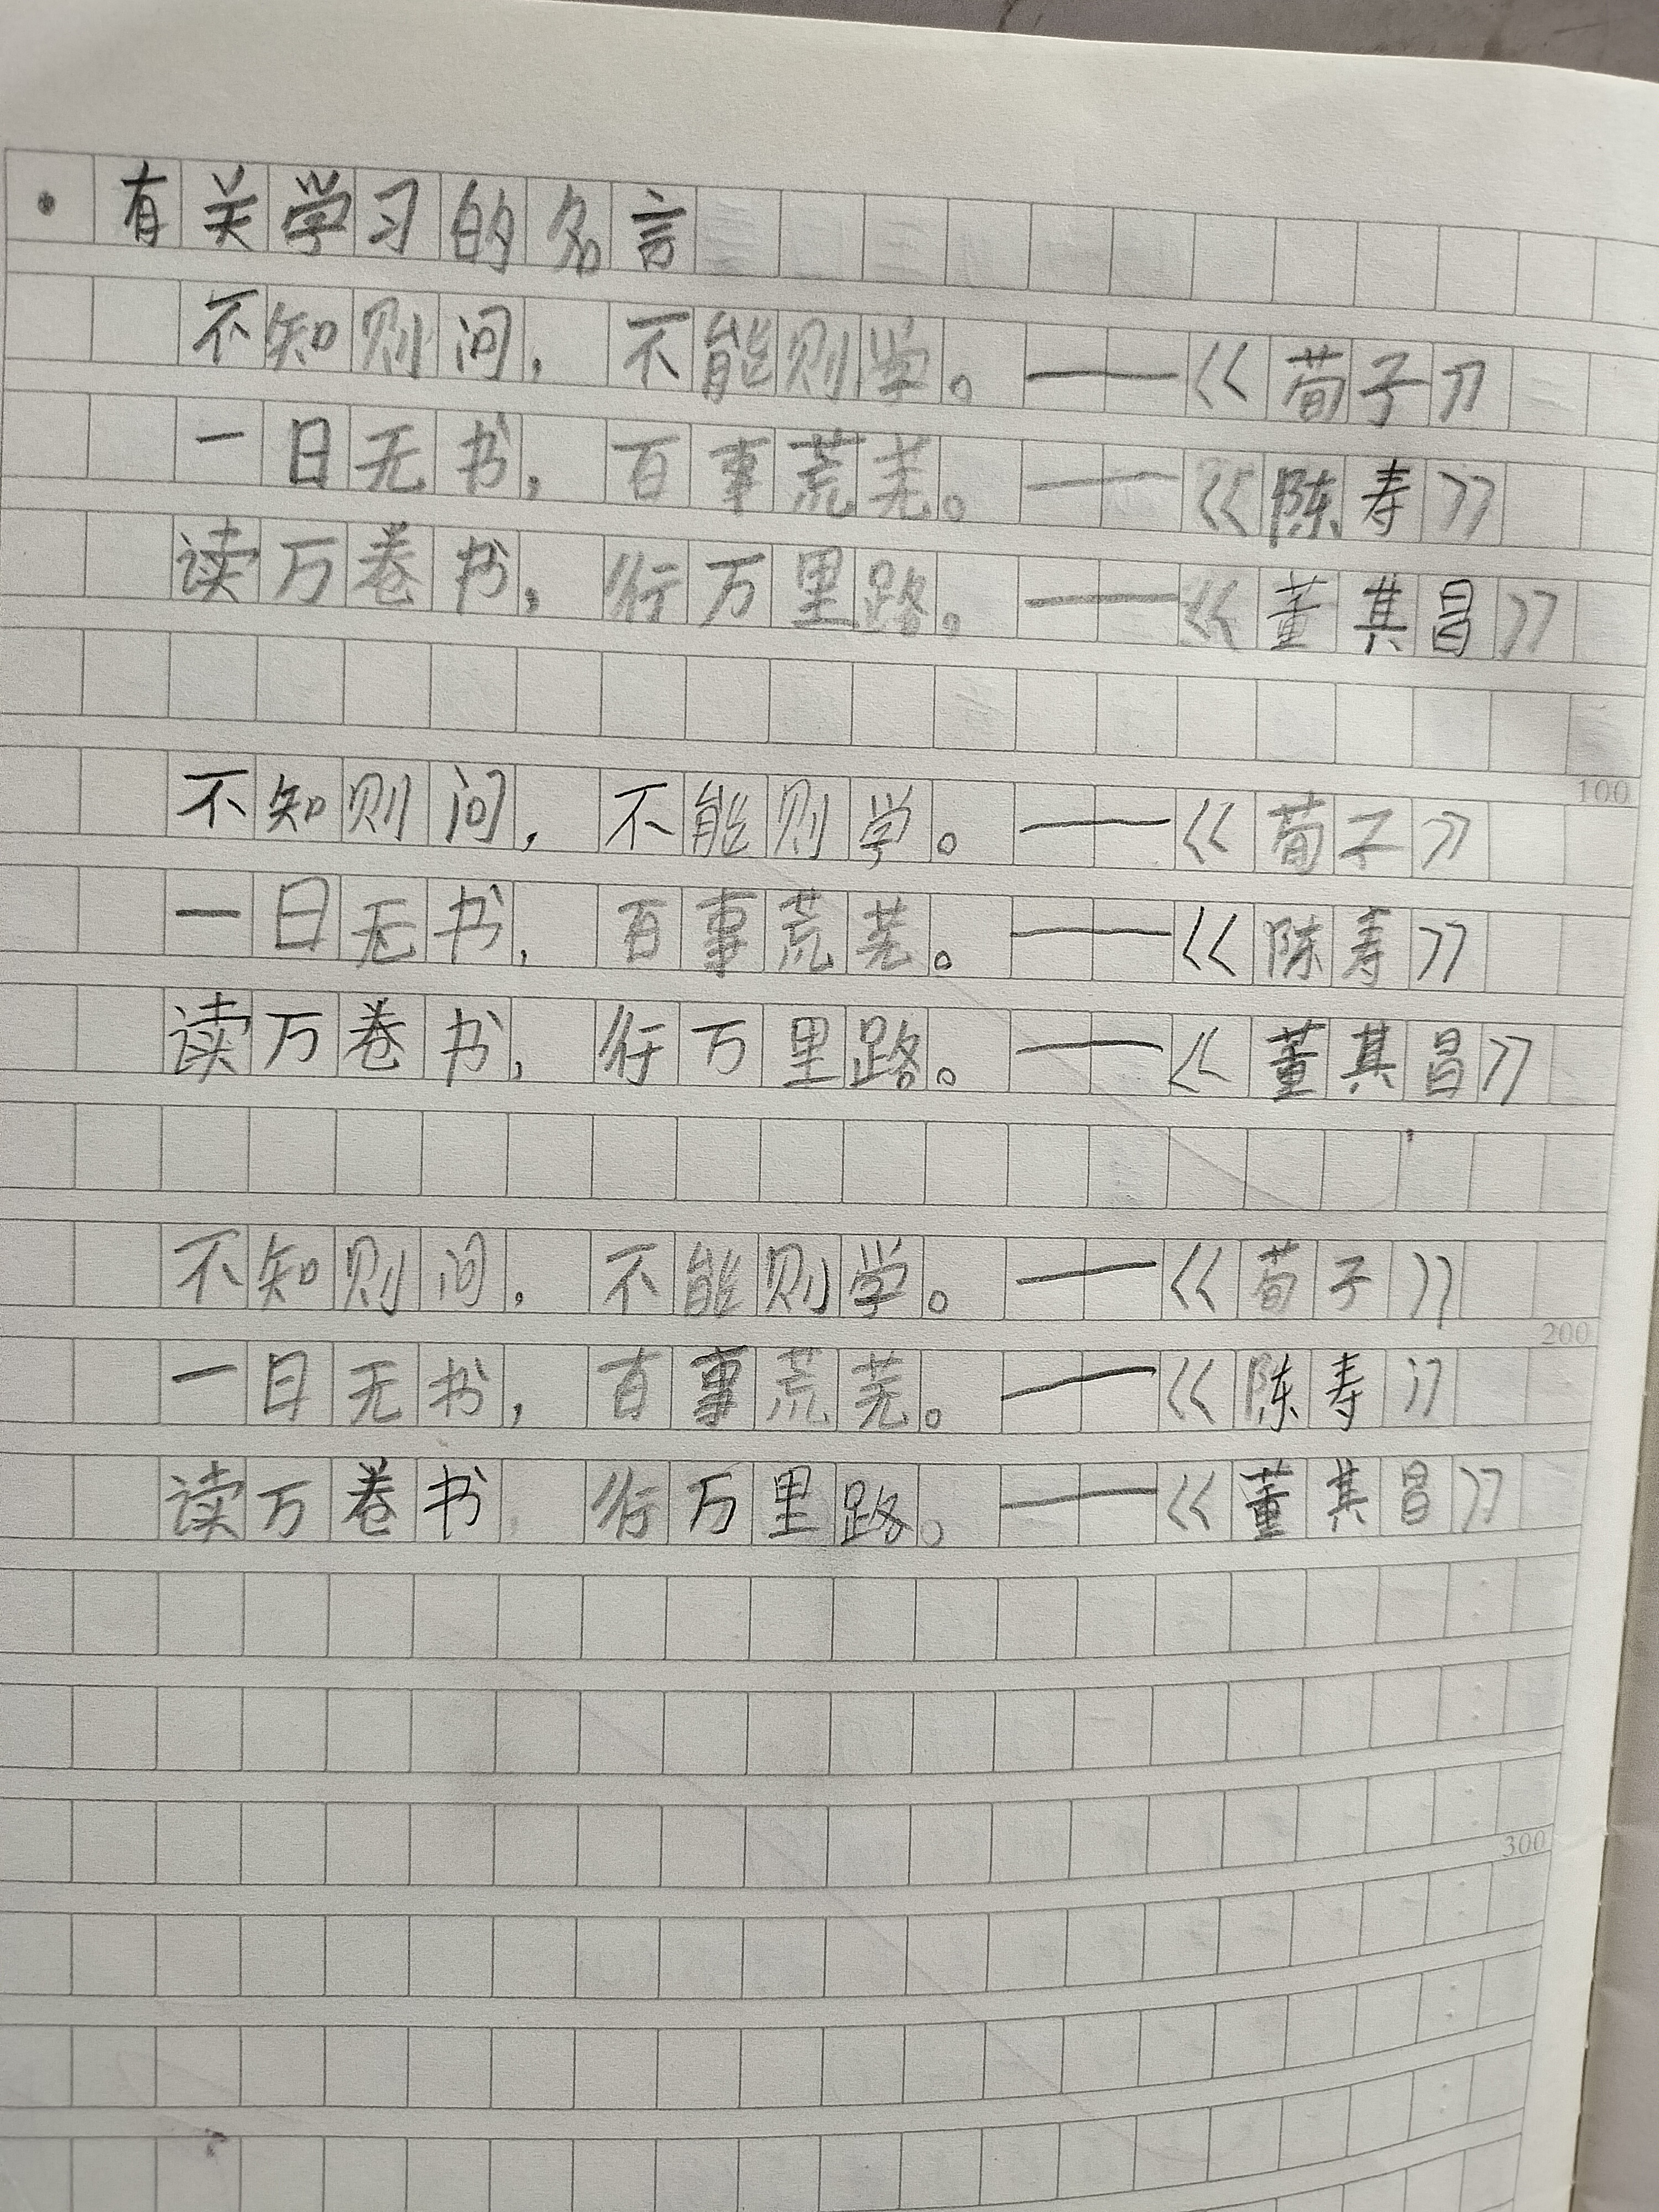 · 有关学习的名言
不知则问，不能则学。——《荀子》
一日无书，百事荒芜。——《陈寿》
读万卷书，行万里路。——《董其昌》
100
不知则问，不能则学。——《荀子》
一日无书，百事荒芜。——《陈寿》
读万卷书，行万里路。——《董其昌》
不知则问，不能则学。——《荀子》
200
一日无书，百事荒芜。——《陈寿》
读万卷书 行万里路。——《董其昌》
300